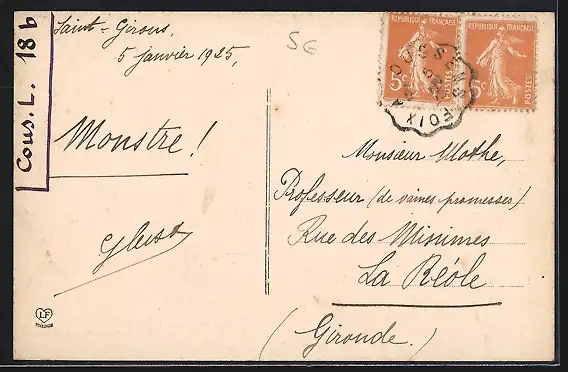 Saint-Girons,
5 janvier 1925,
SG
Cous. L. 18b
Monstre!
REPUBLIQUE FRANÇAISE
5c
POSTES
REPUBLIQUE FRANÇAISE
5c
POSTES
FOIX
Monsieur Mothe,
Professeur (de vaines promesses)
Rue des Minimes
La Réole
(Gironde.)
LF
TOULOUSE